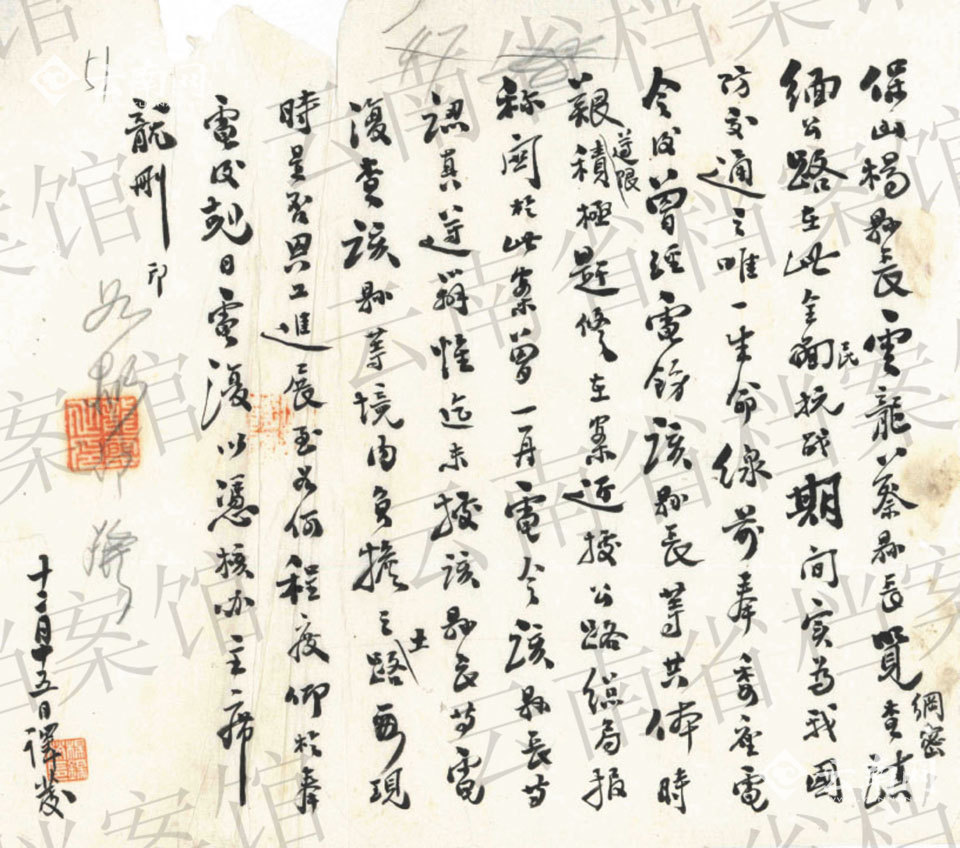 保山楊縣長雲龍蔡縣長覽綱密查滇
緬公路在此全面民抗战期间实為我國
防交通之唯一生命線前奉委座電
令後曾經電飭該縣長等共体時
艱遵限積極趕修在案近據公路總局报
称関於此案曾一再電令該縣長等
認真遵辦惟迄未據該縣長等電
復查該縣等境内負擔之路土要現
時是否興工進展至如何程度仰於奉
電後尅日電復以憑核办主席
龍刪印
十二月十五日譯發
51
云南省档案馆